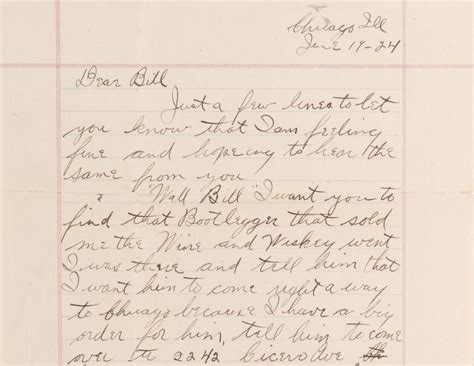 Chicago Ill
June 19-24
Dear Bill
Just a few lines to let
you know that I am feeling
fine and hopeing to hear the
same from you
"Wall Bill" I want you to
find that Bootlegger that sold
me the Wine and Wiskey went
I was there and tell him that
I want him to come right a way
to Chicago because I have a big
order for him, tell him to come
over to 2242 Cicero Ave